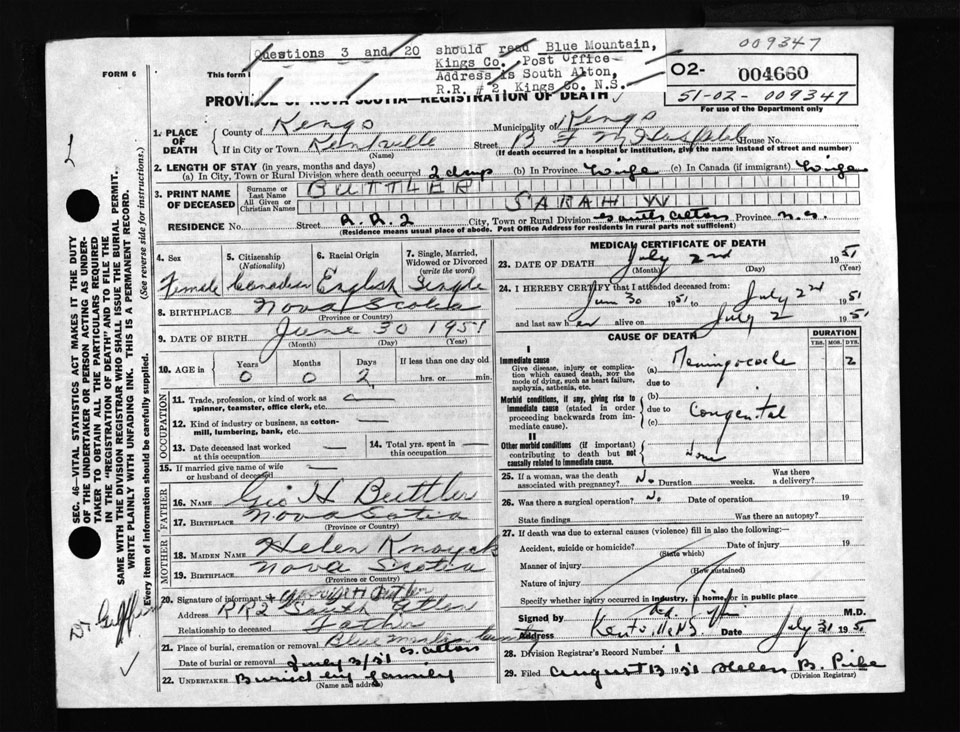 009347
Questions 3 and 20 should read Blue Mountain,
Kings Co. Post Office
Address is South Alton,
R.R. # 2, Kings Co. N.S.
FORM 6
This form i
02- 004660
51-02-009347
For use of the Department only
PROVINCE OF NOVA SCOTIA—REGISTRATION OF DEATH
SEC. 46—VITAL STATISTICS ACT MAKES IT THE DUTY
OF THE UNDERTAKER OR PERSON ACTING AS UNDER-
TAKER TO OBTAIN ALL THE PARTICULARS REQUIRED
IN THE "REGISTRATION OF DEATH" AND TO FILE THE
SAME WITH THE DIVISION REGISTRAR WHO SHALL ISSUE THE BURIAL PERMIT.
WRITE PLAINLY WITH UNFADING INK. THIS IS A PERMANENT RECORD.
Every item of information should be carefully supplied. (See reverse side for instructions.)
1. PLACE OF DEATH County of Kings Municipality of Kings
If in City or Town Kentville Street House No.
(Name) (If death occurred in a hospital or institution, give the name instead of street and number)
2. LENGTH OF STAY (in years, months and days)
(a) In City, Town or Rural Division where death occurred 2 days (b) In Province Life (c) In Canada (if immigrant) Life
3. PRINT NAME OF DECEASED Surname or Last Name BUTTLER
All Given or Christian Names SARAH W
RESIDENCE No. Street R.R.2 City, Town or Rural Division South Alton Province N.S.
(Residence means usual place of abode. Post Office Address for residents in rural parts not sufficient)
4. Sex 5. Citizenship (Nationality) 6. Racial Origin 7. Single, Married, Widowed or Divorced (write the word)
Female Canadian English Single
8. BIRTHPLACE Nova Scotia
(Province or Country)
9. DATE OF BIRTH June 30 1951
(Month) (Day) (Year)
10. AGE in Years Months Days If less than one day old
0 0 2 hrs. or min.
OCCUPATION
11. Trade, profession, or kind of work as spinner, teamster, office clerk, etc. —
12. Kind of industry or business, as cotton-mill, lumbering, bank, etc. —
13. Date deceased last worked at this occupation — 14. Total yrs. spent in this occupation. —
15. If married give name of wife or husband of deceased —
FATHER
16. NAME Geo H Buttler
17. BIRTHPLACE Nova Scotia
(Province or Country)
MOTHER
18. MAIDEN NAME Helen
19. BIRTHPLACE Nova Scotia
(Province or Country)
20. Signature of informant
Address RR2 South Alton
Relationship to deceased Father
21. Place of burial, cremation or removal Blue Mountain
Date of burial or removal July 3/51 S. Alton
22. UNDERTAKER Buried by family
(Name and address)
MEDICAL CERTIFICATE OF DEATH
23. DATE OF DEATH July 2nd 1951
(Month) (Day) (Year)
24. I HEREBY CERTIFY that I attended deceased from:
June 30 1951 to July 2nd 1951
and last saw her alive on July 2 1951
CAUSE OF DEATH DURATION
YRS. MOS. DYS.
I
Immediate cause (a) Meningocoele 2
Give disease, injury or complication which caused death, NOT the mode of dying, such as heart failure, asphyxia, asthenia, etc. due to
Morbid conditions, if any, giving rise to immediate cause (stated in order proceeding backwards from immediate cause). (b) due to Congenital (c)
II
Other morbid conditions (if important) contributing to death but not causally related to immediate cause. None
25. If a woman, was the death associated with pregnancy? No Duration weeks. Was there a delivery?
26. Was there a surgical operation? No Date of operation 19
State findings Was there an autopsy?
27. If death was due to external causes (violence) fill in also the following:—
Accident, suicide or homicide? Date of injury 19
(State which)
Manner of injury
(How sustained)
Nature of injury
Specify whether injury occurred in industry, in home, or in public place
Signed by M.D.
Address Kentville N.S. Date July 31 1951
28. Division Registrar's Record Number 1
29. Filed August 13 1951 Helen B. Pike
(Division Registrar)